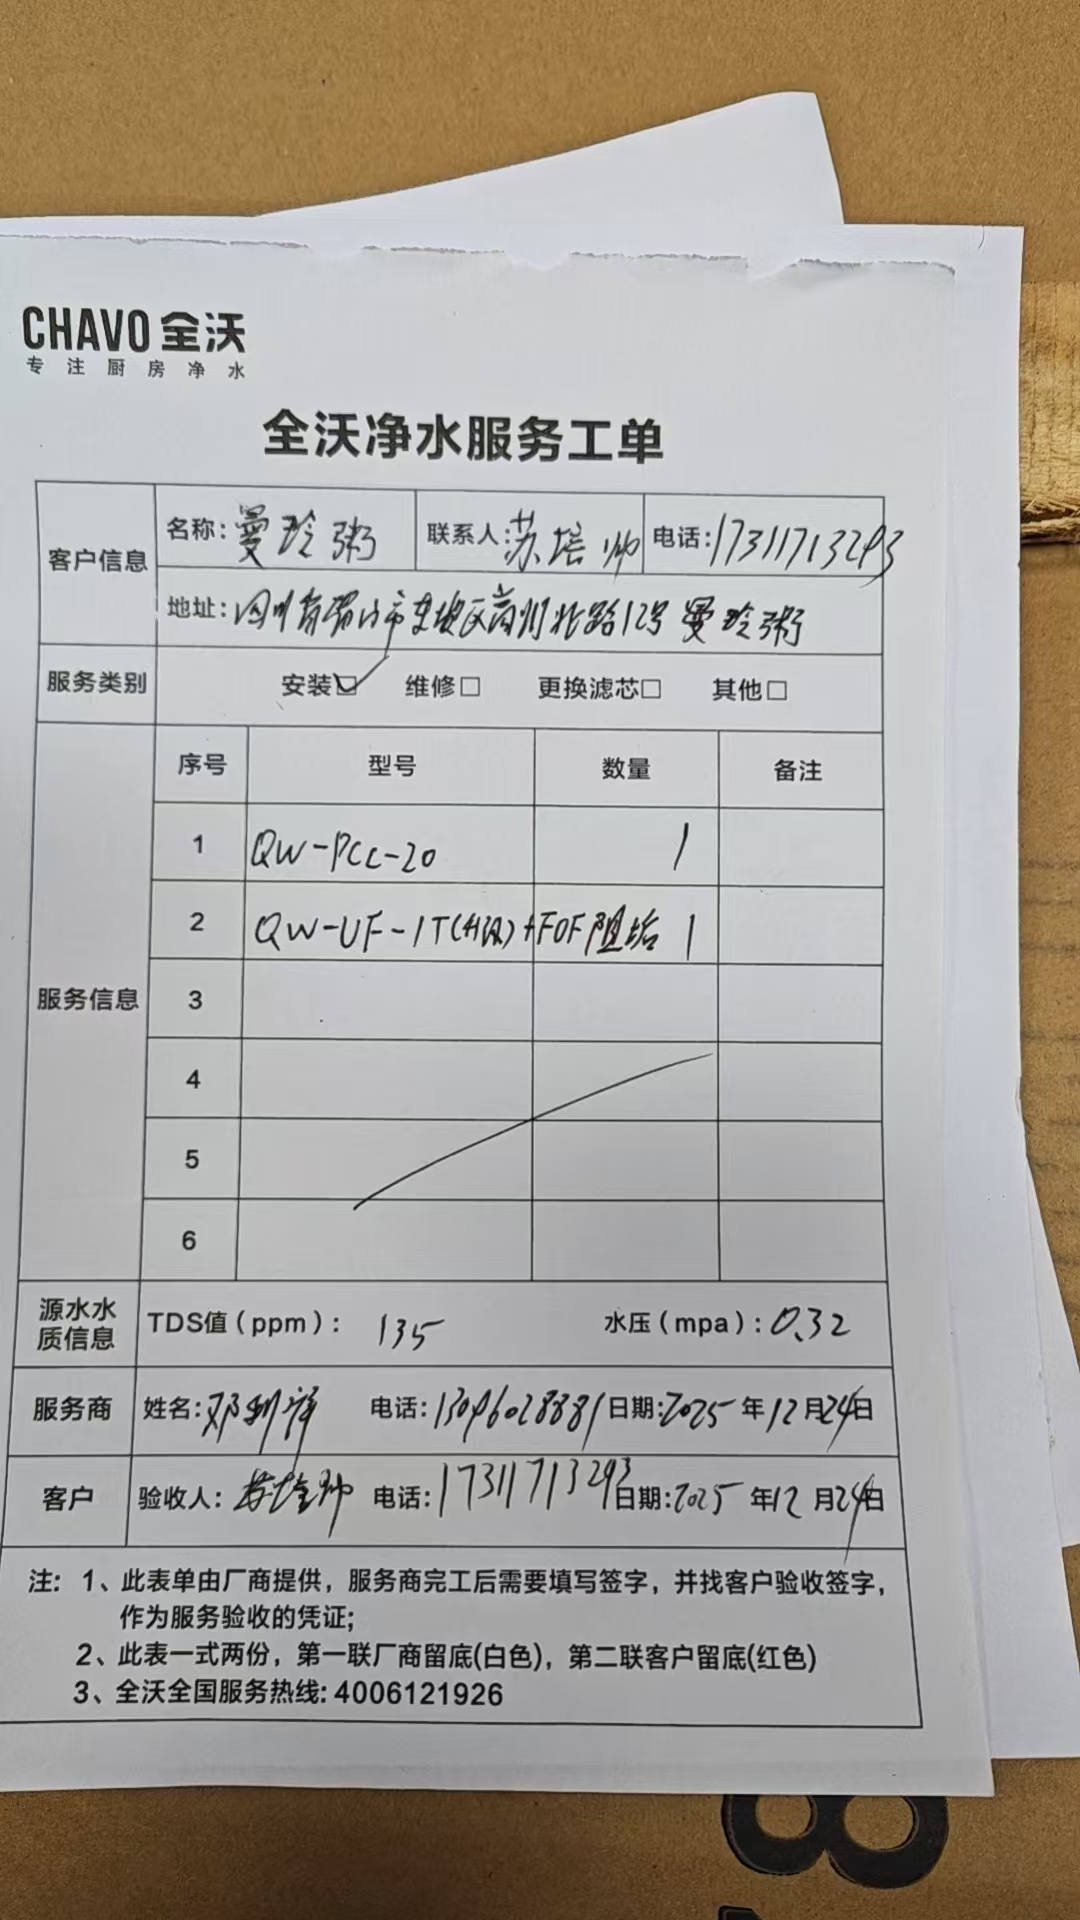 CHAVO 全沃
专注厨房净水
全沃净水服务工单
客户信息 名称: 曼玲粥 联系人: 苏培帅 电话: 17311713293
地址: 四川省眉山市东坡区苏州北路12号 曼玲粥
服务类别 安装☑ 维修□ 更换滤芯□ 其他□
服务信息
序号 型号 数量 备注
1 QW-PCC-20 1
2 QW-UF-1T(升级)+FOF阻垢 1
3
4
5
6
源水水质信息 TDS值(ppm): 135 水压(mpa): 0.32
服务商 姓名: 邓利 电话: 13096028881 日期: 2025年12月24日
客户 验收人: 苏培帅 电话: 17311713293 日期: 2025年12月24日
注: 1、此表单由厂商提供，服务商完工后需要填写签字，并找客户验收签字，
作为服务验收的凭证;
2、此表一式两份，第一联厂商留底(白色)，第二联客户留底(红色)
3、全沃全国服务热线: 4006121926
8